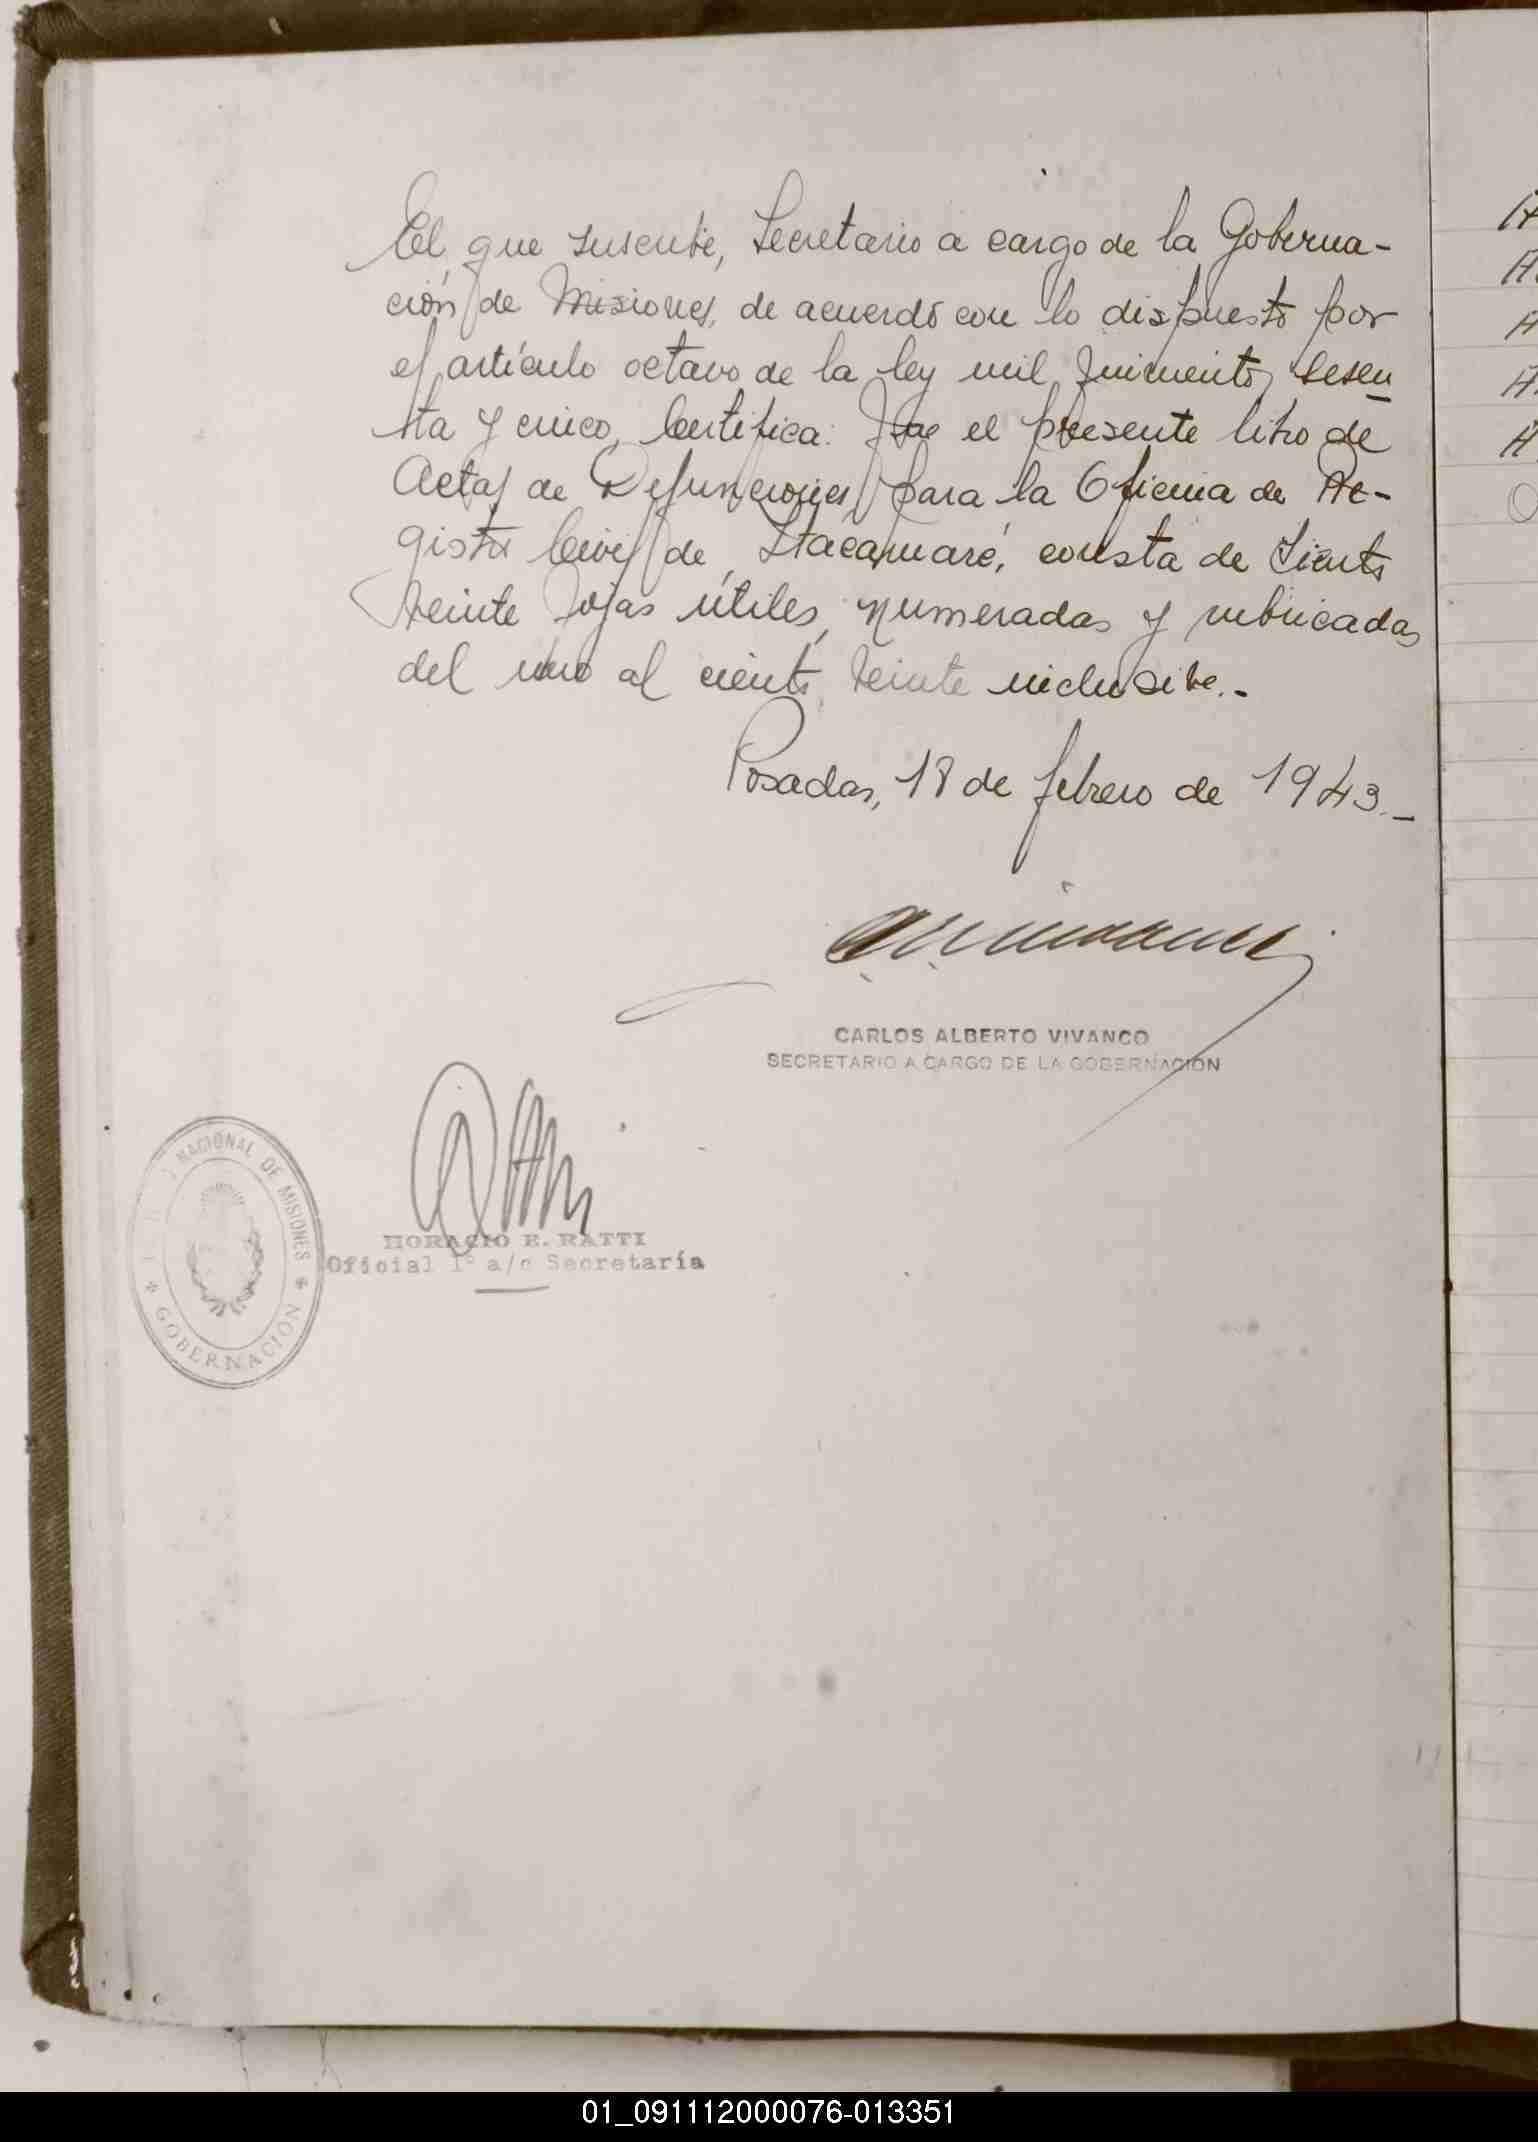 El que suscribe, Secretario a cargo de la Goberna-
ción de Misiones, de acuerdo con lo dispuesto por
el artículo octavo de la ley mil quinientos sesen
ta y cinco, Certifica: Que el presente libro de
Actas de Defunciones para la Oficina de Re-
gistro Civil de Itacaruaré, consta de Ciento
veinte fojas útiles, numeradas y rubricadas
del uno al ciento veinte inclusive.-
Posadas, 18 de febrero de 1943.-
CARLOS ALBERTO VIVANCO
SECRETARIO A CARGO DE LA GOBERNACION
HORACIO E. RATTI
Oficial 1º a/c Secretaría
NACIONAL DE MISIONES
GOBERNACION
01_091112000076-013351